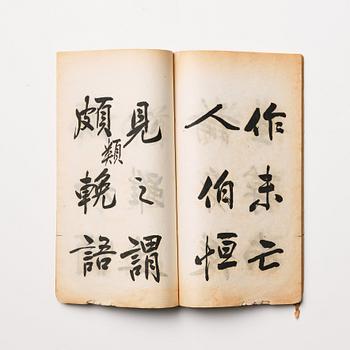 作未亡
人伯恒
見之謂
頗類
輓語